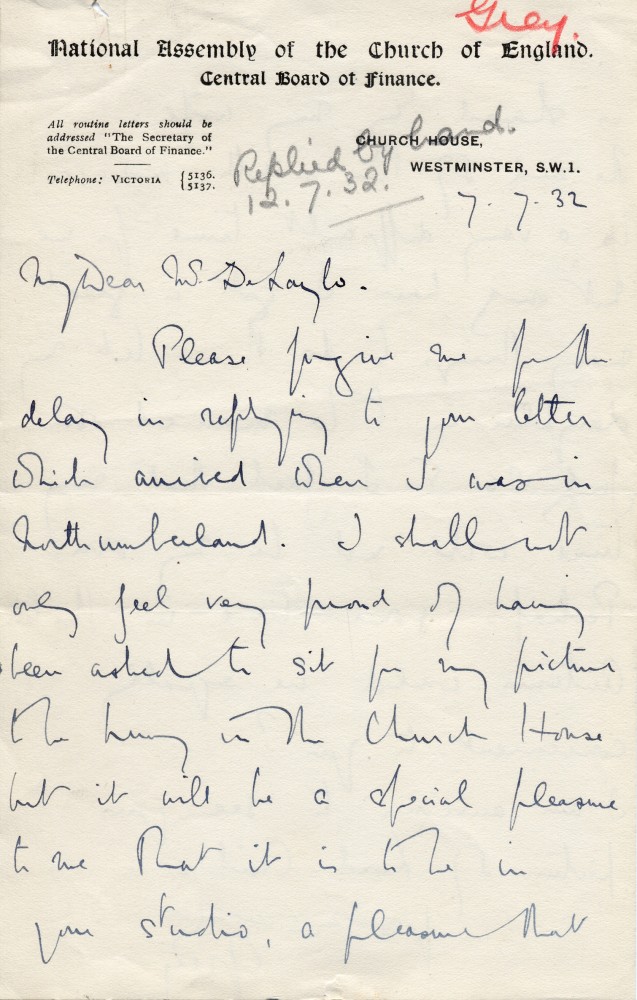 Grey.
National Assembly of the Church of England.
Central Board of Finance.
All routine letters should be
addressed "The Secretary of
the Central Board of Finance."
Telephone: VICTORIA { 5136.
5137.
Replied by hand.
12.7.32.
CHURCH HOUSE,
WESTMINSTER, S.W.1.
7.7.32
My Dear Mr. De Laszlo.
Please forgive me for the
delay in replying to your letter
which arrived when I was in
Northumberland. I shall not
only feel very proud of having
been asked to sit for my picture
to be hung in the Church House
but it will be a special pleasure
to me that it is to be in
your studio, a pleasure that